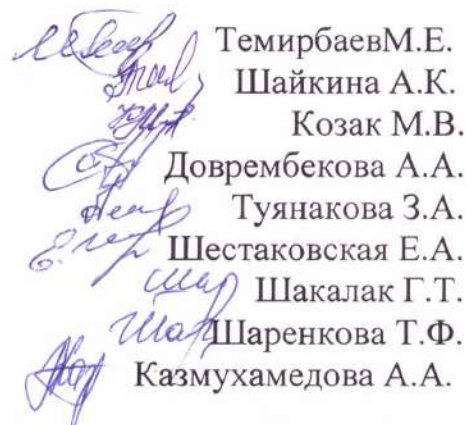 ТемирбаевМ.Е.
Шайкина А.К.
Козак М.В.
Доврембекова А.А.
Туянакова З.А.
Шестаковская Е.А.
Шакалак Г.Т.
Шаренкова Т.Ф.
Казмухамедова А.А.